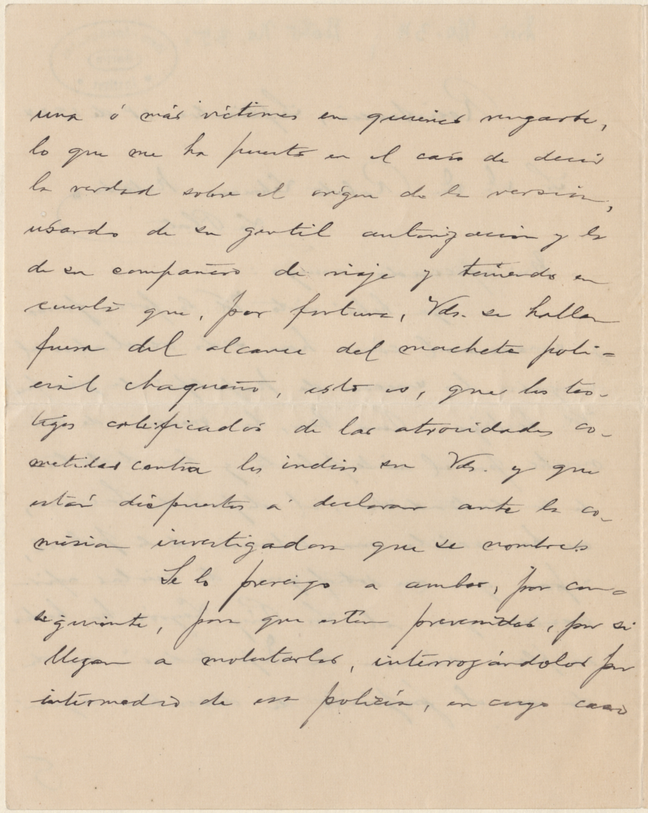 una ó más víctimas en quienes vengarse,
lo que me ha puesto en el caso de decir
la verdad sobre el origen de la versión,
usando de su gentil autorización y la
de su compañero de viaje y teniendo en
cuenta que, por fortuna, Vds. se hallan
fuera del alcance del machete poli-
cial chaqueño, esto es, que los tes-
tigos calificados de las atrocidades co-
metidas contra los indios son Vds. y que
están dispuestos á declarar ante la co-
mision investigadora que se nombre.
Se lo prevengo a ambos, por con-
siguiente, para que estén prevenidos, por si
llegan a molestarlos, interrogándolos por
intermedio de esa policía, en cuyo caso